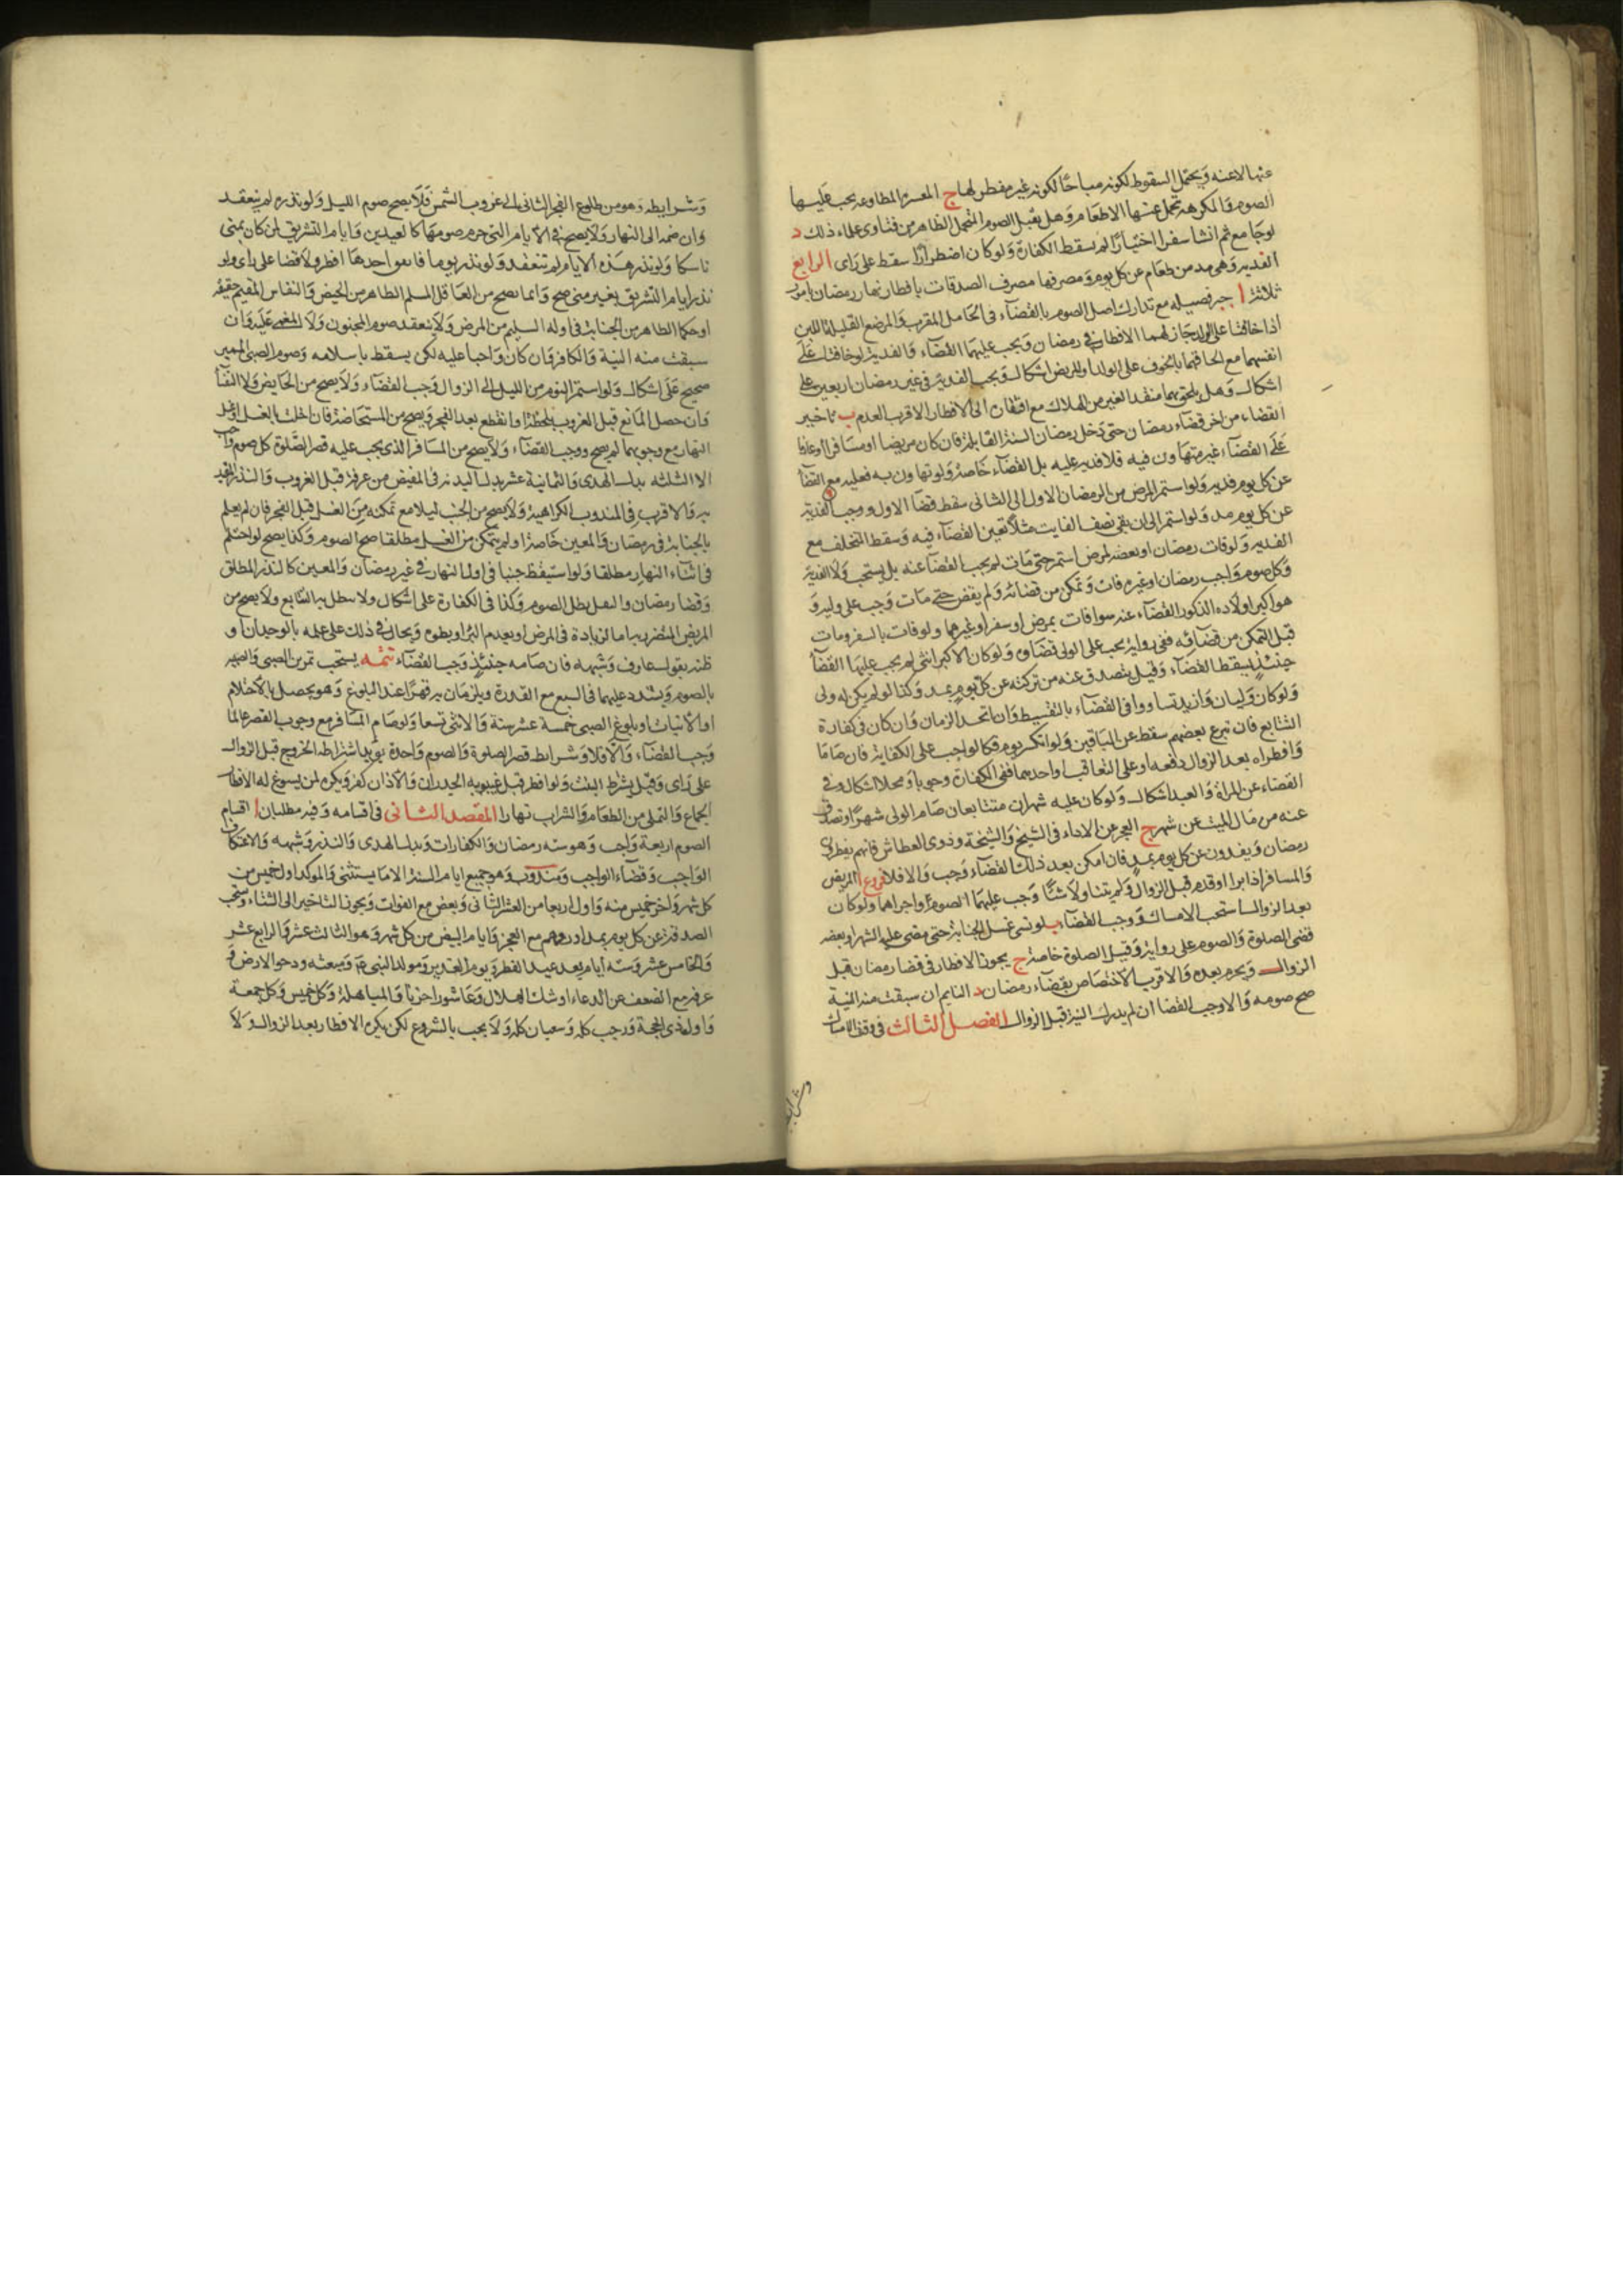 عنها الا عنه ويحتمل السقوط لكونه مباحًا لكونه غير مفطر لها ج المعسرة المطاوعة يجب عليها
الصوم والمكرهة تحمل عنها الاطعام وهل يقبل الصوم التحمل الظاهر من فتاوى علماء ذلك د
لو جامع ثم انشا سفرا اختيارًا لم يسقط الكفارة ولو كان اضطرارًا سقط على راى الرابع
الفدية وهى مد من طعام عن كل يوم ومصرفها مصرف الصدقات بافطار نهار رمضان بامور
ثلثة ا جبر فضيله مع تدارك اصل الصوم بالقضاء فى الحامل المقرب والمرضع القليلة اللبن
اذا خافتا على الولد جاز لهما الافطار فى رمضان ويجب عليهما القضاء والفدية لو خافتا على
انفسهما مع الحاقهما بالخوف على الولد او للريض اشكال ويجب الفدية فى غير رمضان ان تعين على
اشكال وهل يلحق بهما منقذ الغير من الهلاك مع افتقاره الى الافطار الاقرب العدم ب تاخير
القضاء من اخر قضاء رمضان حتى دخل رمضان السنة القابلة فان كان مريضا او مسافرا او عازما
على القضاء غير متهاون فيه فلا فدية عليه بل القضاء خاصة ولو تهاون به فعليه مع القضا
عن كل يوم فدية ولو استمر المرض من الرمضان الاول الى الثانى سقط قضا الاول ووجب الفدية
عن كل يوم مد ولو استمر الى ان بقى نصف الفايت مثلا تعين القضاء فيه وسقط المتخلف مع
الفدية ولو فات رمضان او بعضه لمرض استمر حتى مات لم يجب القضا عنه بل يستحب ولا الفدية
وكل صوم واجب رمضان او غيره فات وتمكن من قضائه ولم يقض حتى مات وجب على وليه و
هو اكبر اولاده الذكور القضاء عنه سوا فات بمرض او سفر او غيرهما ولو فات بالسفر ومات
قبل التمكن من قضائه ففى رواية يجب على الولى قضاؤه ولو كان الاكبر انثى لم يجب عليها القضا
حينئذ يسقط القضاء وقيل يتصدق عنه من تركته عن كل يوم بمد وكذا لو لم يكن له ولى
ولو كان وليان وازيد تساووا فى القضاء بالتقسيط وان اتحد الزمان وان كان فى كفارة
التتابع فان تبرع بعضهم سقط عن الباقين ولو انكسر يوم فكالواجب على الكفاية فان صاما
وافطراه بعد الزوال دفعه او على التعاقب او احدهما ففى الكفارة وجوبا ومحلا اشكال وفى
القضاء عن المراة والعبد اشكال ولو كان عليه شهران متتابعان صام الولى شهرًا وتصدق
عنه من مال الميت عن شهر ج العجز عن الاداء فى الشيخ والشيخة وذوى العطاش فانهم يفطرون
رمضان ويفدون عن كل يوم بمد فان امكن بعد ذلك القضاء وجب والا فلا فروع ا المريض
والمسافر اذا برا او قدم قبل الزوال ولم يتناولا شئًا وجب عليهما الصوم واجزاهما ولو كان
بعد الزوال استحب الامساك ووجب القضاء ب لو نسى غسل الجنابة حتى مضى عليه الشهر او بعضه
قضى الصلوة والصوم على رواية وقيل الصلوة خاصة ج يجوز الافطار فى قضا رمضان قبل
الزوال ويحرم بعده والاقرب الاختصاص بقضاء رمضان د النايم ان سبقت منه النية
صح صومه والا وجب القضا ان لم يدرك النية قبل الزوال الفصل الثالث فى وقت الامساك
وشرايطه
وشرايطه وهو من طلوع الفجر الثانى الى غروب الشمس فلا يصح صوم الليل ولو نذره لم ينعقد
وان ضمه الى النهار ولا يصح فى الايام التى حرم صومها كالعيدين وايام التشريق لمن كان بمنى
ناسكا ولو نذر هذه الايام لم تنعقد ولو نذر يوما فاتفق احدها افطر ولا قضا على راى ولو
نذر ايام التشريق بغير منى صح وانما يصح من العاقل المسلم الطاهر من الحيض والنفاس المقيم حقيقة
او حكما الطاهر من الجنابة فى اوله السليم من المرض ولا ينعقد صوم المجنون ولا المغمى عليه وان
سبقت منه النية والكافر وان كان واجبا عليه لكن يسقط باسلامه وصوم الصبى المميز
صحيح على اشكال ولو استمر النوم من الليل الى الزوال وجب القضاء ولا يصح من الحايض ولا النفسا
وان حصل المانع قبل الغروب بلحظة او انقطع بعد الفجر ويصح من المستحاضة فان اخلت بالغسل او غسل
النهار مع وجوبهما لم يصح ووجب القضاء ولا يصح من المسافر الذى يجب عليه قصر الصلوة كل صوم واجب
الا الثلثه بدل الهدى والثمانية عشر بدل البدنه فى المفيض من عرفة قبل الغروب والنذر المقيد
به والاقرب فى المندوب الكراهية ولا يصح من الجنب ليلا مع تمكنه من الغسل قبل الفجر فان لم يعلم
بالجنابة فى رمضان والمعين خاصة او لم يتمكن من الغسل مطلقا صح الصوم وكذا يصح لو احتلم
فى اثناء النهار مطلقا ولو استيقظ جنبا فى اول النهار فى غير رمضان والمعين كالنذر المطلق
وقضا رمضان والنفل بطل الصوم وكذا فى الكفارة على اشكال ولا يبطل به التتابع ولا يصح من
المريض المتضرر به اما لزيادة فى المرض او بعدم البرء او بطؤه ويحال فى ذلك على علمه بالوجدان و
ظنه بقول عارف وشبهه فان صامه حينئذ وجب القضاء تتمه يستحب تمرين الصبى والصبيه
بالصوم ويشدد عليهما فى السبع مع القدرة ويلزمان به قهرًا عند البلوغ وهو يحصل بالاحتلام
او الانبات او بلوغ الصبى خمسة عشر سنة والانثى تسعا ولو صام المسافر مع وجوب القصر عالما
وجب القضاء والا فلا وشرايط قصر الصلوة والصوم واحدة ويزيد اشتراط الخروج قبل الزوال
على راى وقيل يشترط البيت ولو افطر قبل غيبوبه الجدران والاذان كفر ويكره لمن يسوغ له الافطار
الجماع والتملى من الطعام والشراب نهارا المقصد الثانى فى اقسامه وفيه مطلبان ا اقسام
الصوم اربعة واجب وهو سته رمضان والكفارات وبدل الهدى والنذر وشبهه والاعتكاف
الواجب وقضاء الواجب ومندوب وهو جميع ايام السنة الا ما يستثنى والموكد اول خميس من
كل شهر واخر خميس منه واول اربعا من العشر الثانى وبعض مع الفوات ويجوز التاخير الى الشتاء ويستحب
الصدقة عن كل يوم بمد او درهم مع العجز وايام البيض من كل شهر وهو الثالث عشر والرابع عشر
والخامس عشر وسته ايام بعد عيد الفطر ويوم الغدير ومولد النبى ع ومبعثه ودحو الارض و
عرفه مع الضعف عن الدعاء او شك الهلال وعاشورا حزنا والمباهلة وكل خميس وكل جمعة
واول ذى الحجة ورجب كله وشعبان كله ولا يجب بالشروع لكن يكره الافطار بعد الزوال ولا